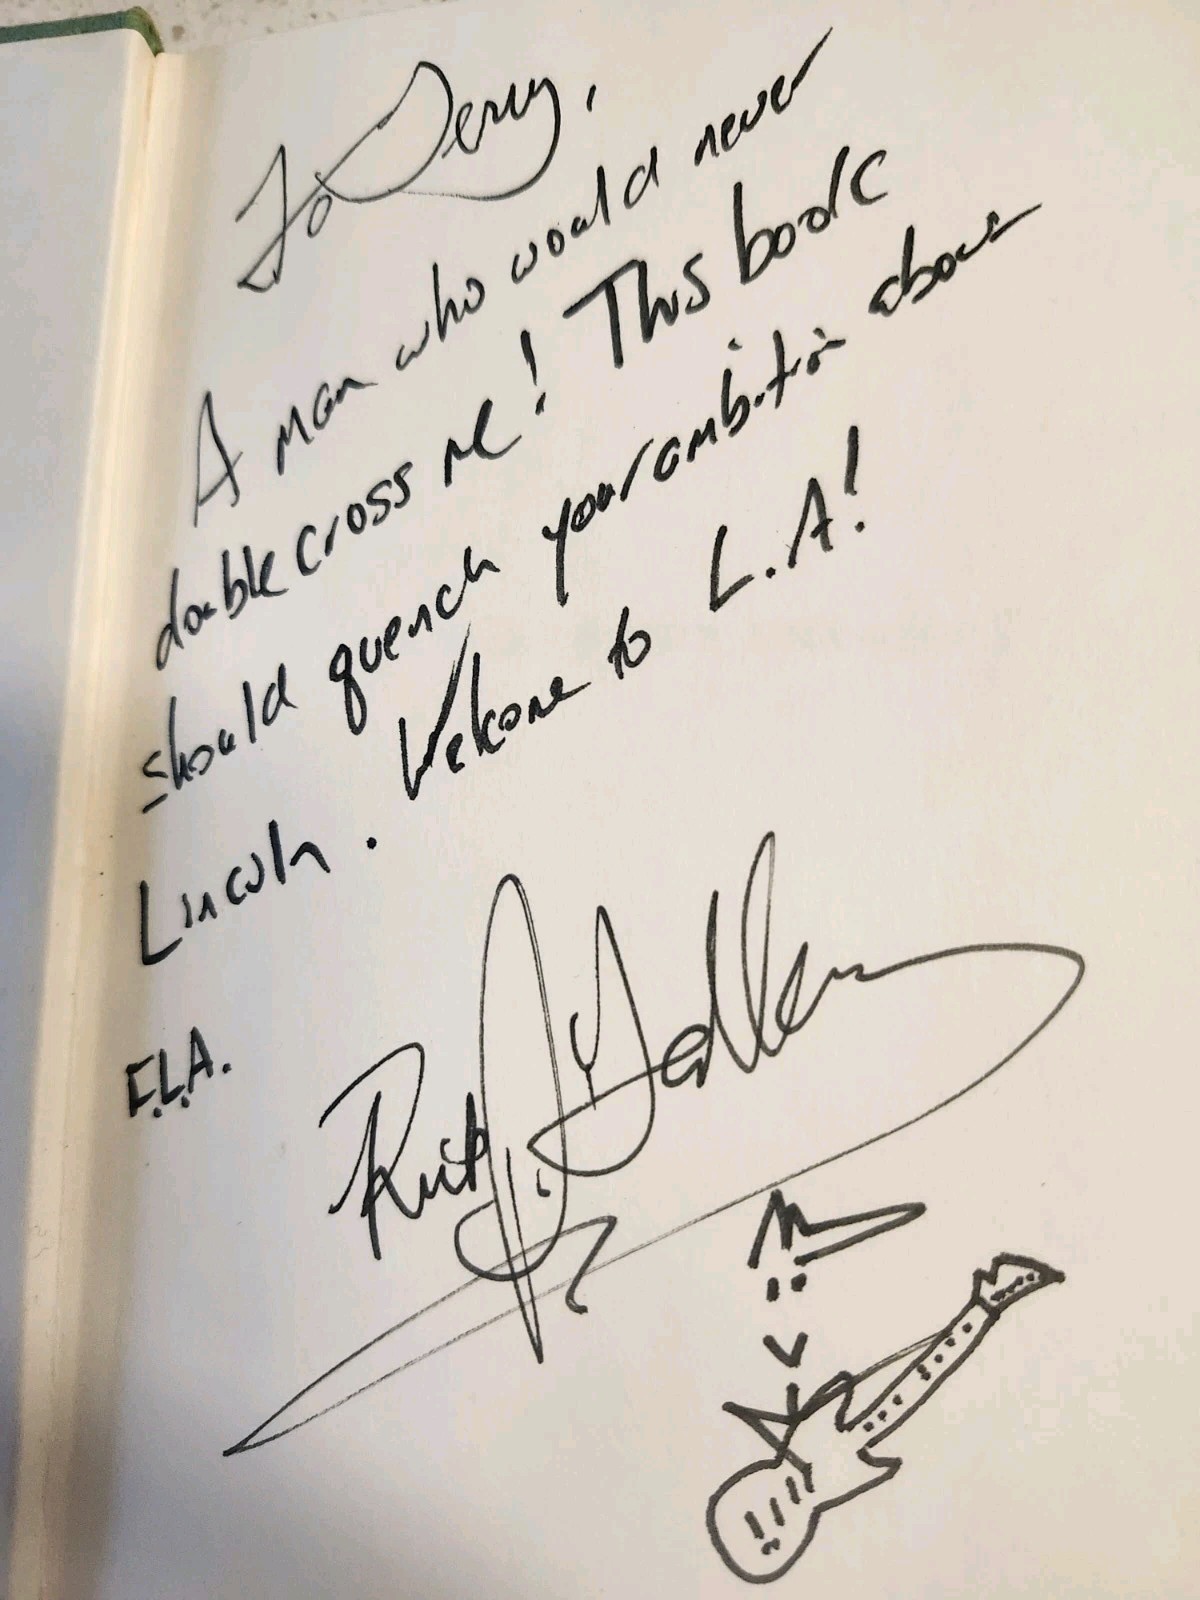 To Jerry,
A man who would never
double cross me! This book
should quench your ambition about
Lincoln. Welcome to L.A!
F.L.A.
Rick